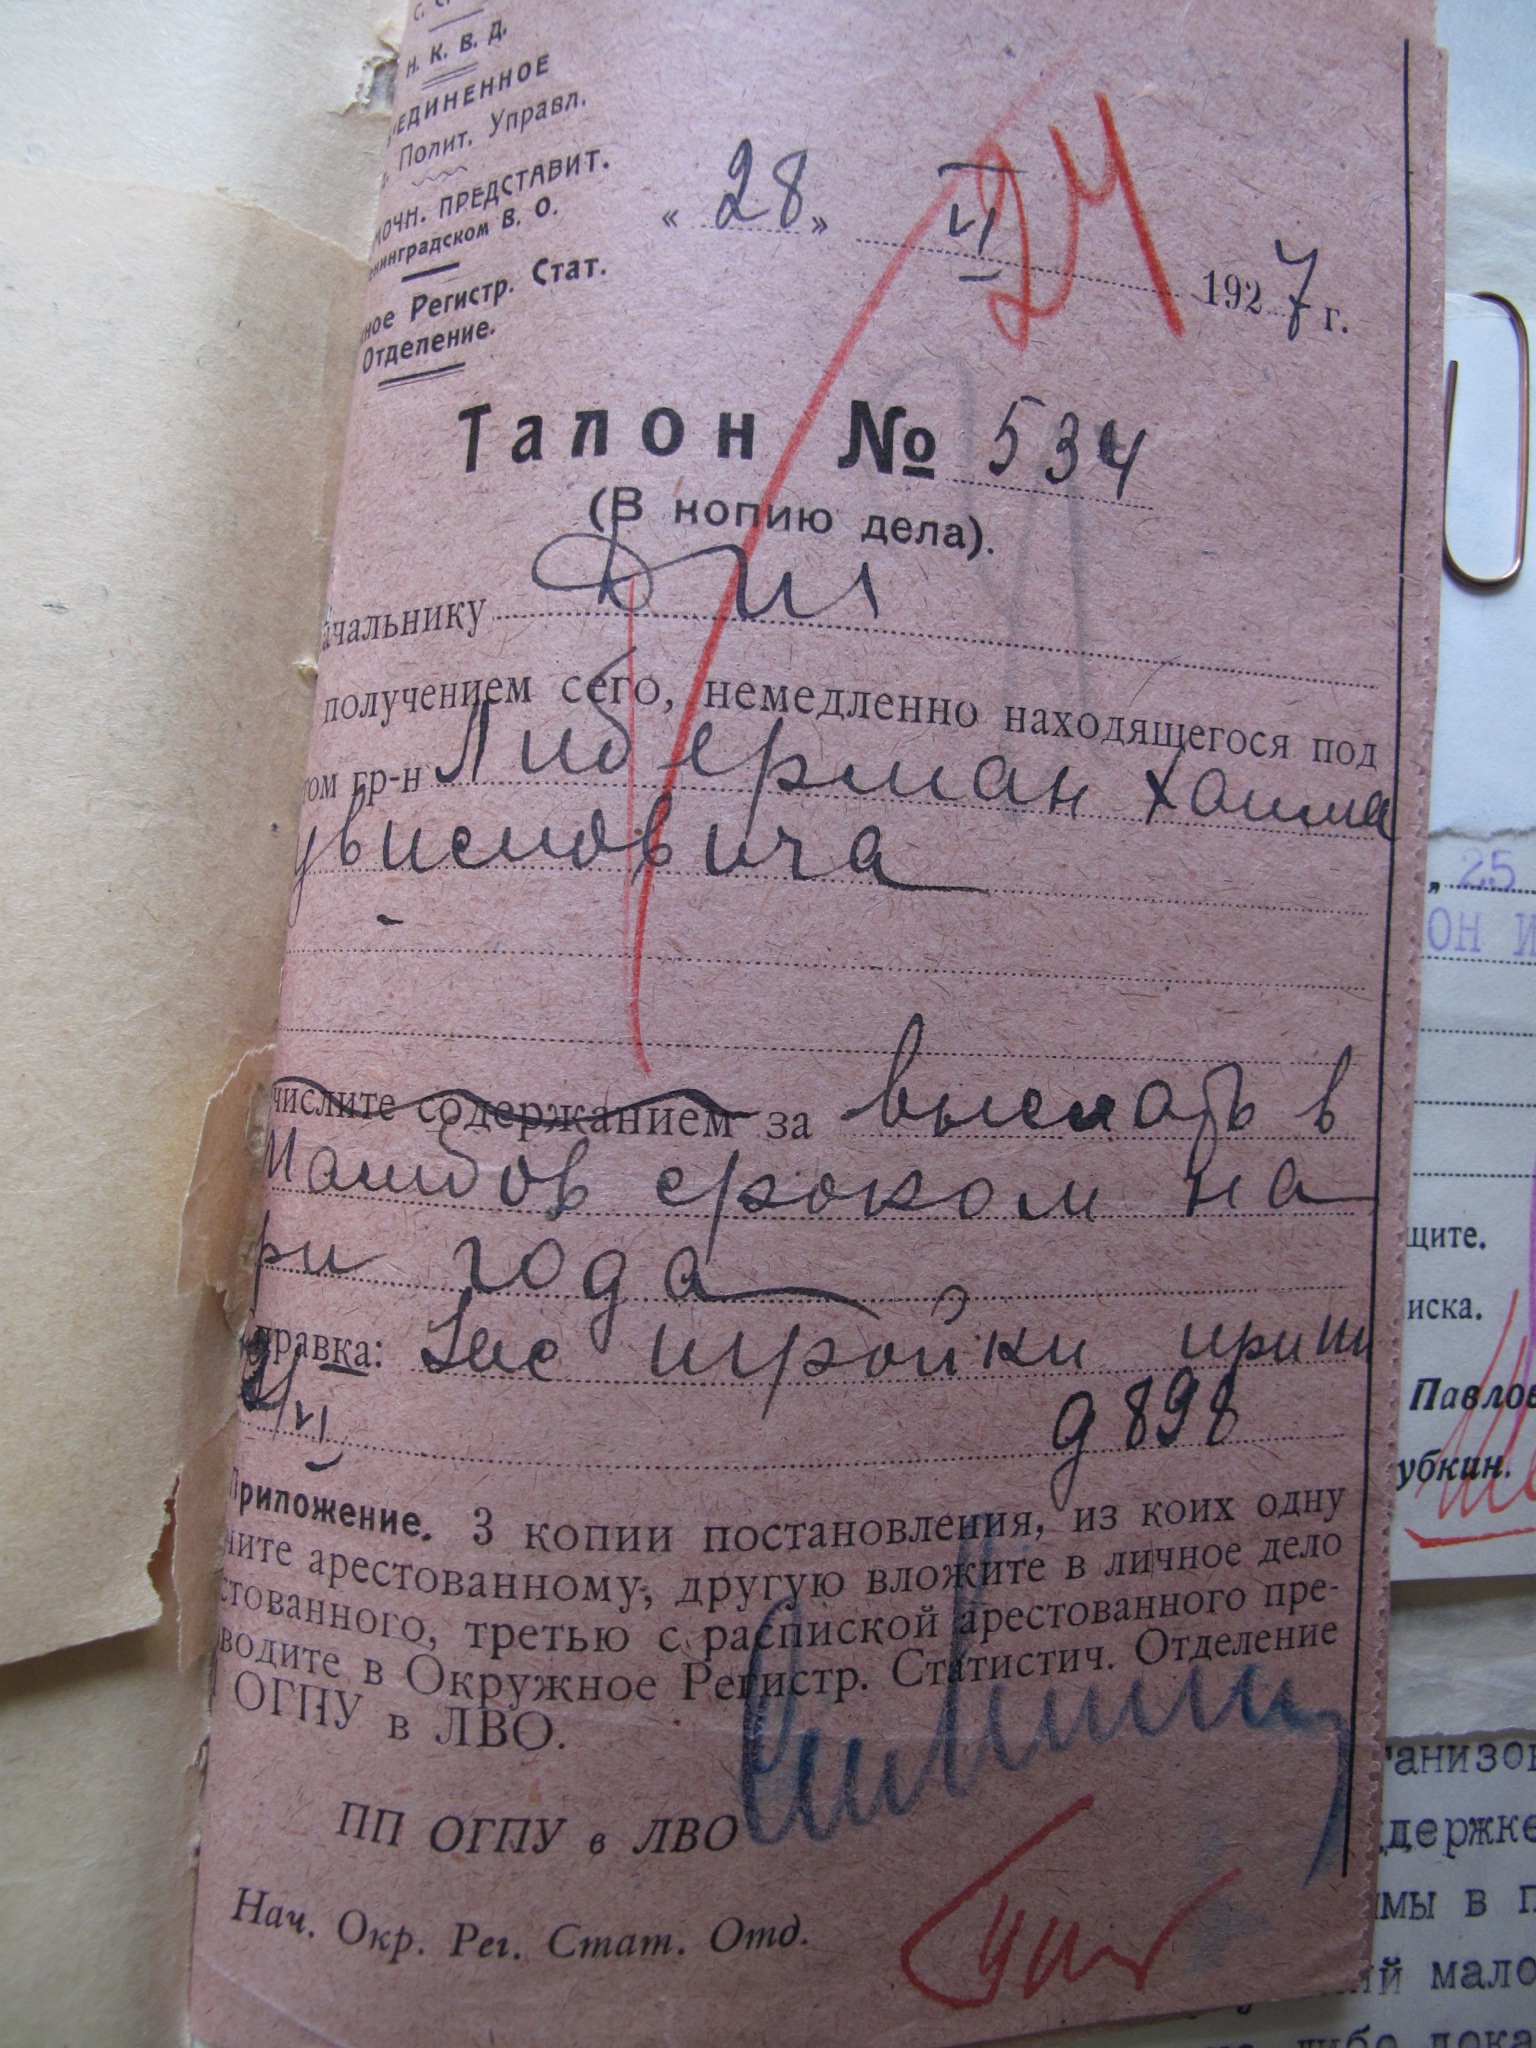 Н. К. В. Д.
ЕДИНЕННОЕ
Полит. Управл.
МОЧН. ПРЕДСТАВИТ.
енинградском В. О.
ное Регистр. Стат.
Отделение.
« 28 » VI 1927 г.
24
Талон № 534
(В копию дела).
ачальнику ДПЗ
получением сего, немедленно находящегося под
том гр-н Либерман Хаима
увисмовича
числите содержанием за выслать в
Тамбов сроком на
ри года
правка: Зас тройки при ПП
VI д 898
Приложение. 3 копии постановления, из коих одну
чите арестованному, другую вложите в личное дело
стованного, третью с распиской арестованного пре-
водите в Окружное Регистр. Статистич. Отделение
ОГПУ в ЛВО.
ПП ОГПУ в ЛВО
Нач. Окр. Рег. Стат. Отд.
„ 25
ОН И
щите.
иска.
Павлов
убкин.
ганизов
ддержке
мы в п
ий мало
либо дока